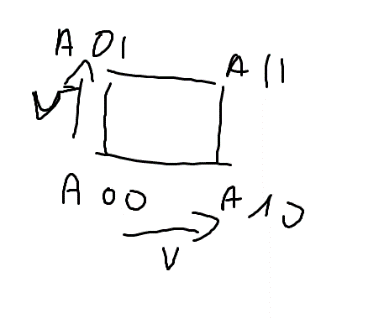 A 01
A 11
V
A 00
A 10
V